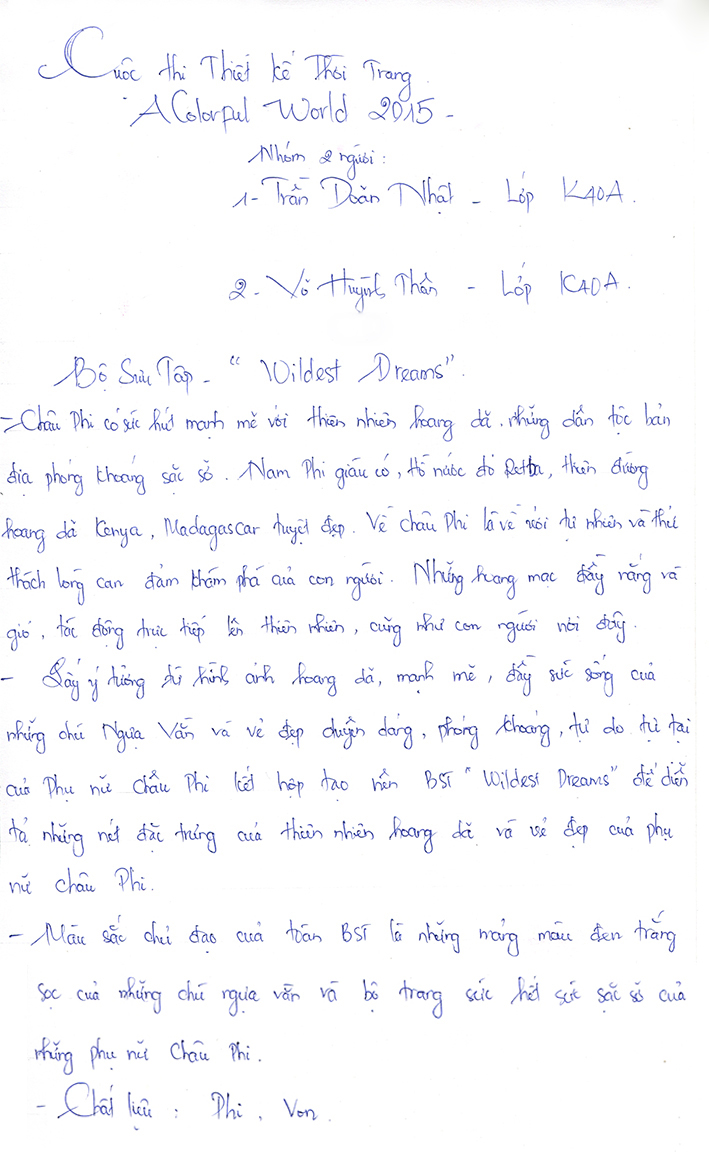 Cuộc thi Thiết kế Thời Trang
"A Colorful World 2015 -
Nhóm 2 người :
1- Trần Doãn Nhật - Lớp K40A.
2 - Võ Huỳnh Thân - Lớp K40A.
Bộ Sưu Tập - "Wildest Dreams".
- Châu Phi có sức hút mạnh mẽ với thiên nhiên hoang dã, những dân tộc bản
địa phóng khoáng sặc sỡ. Nam Phi giàu có, hồ nước đỏ, thiên đường
hoang dã Kenya, Madagascar tuyệt đẹp. Về châu Phi là về với tự nhiên và thử
thách lòng can đảm khám phá của con người. Những hoang mạc đầy nắng và
gió, tác động trực tiếp lên thiên nhiên, cũng như con người nơi đây.
- Lấy ý tưởng từ hình ảnh hoang dã, mạnh mẽ, đầy sức sống của
những chú Ngựa Vằn và vẻ đẹp duyên dáng, phóng khoáng, tự do tự tại
của Phụ nữ Châu Phi kết hợp tạo nên BST "Wildest Dreams" để diễn
tả những nét đặc trưng của thiên nhiên hoang dã và vẻ đẹp của phụ
nữ châu Phi.
- Màu sắc chủ đạo của toàn BST là những mảng màu đen trắng
sọc của những chú ngựa vằn và bộ trang sức hết sức sặc sỡ của
những phụ nữ Châu Phi.
- Chất liệu : Phi, Von.